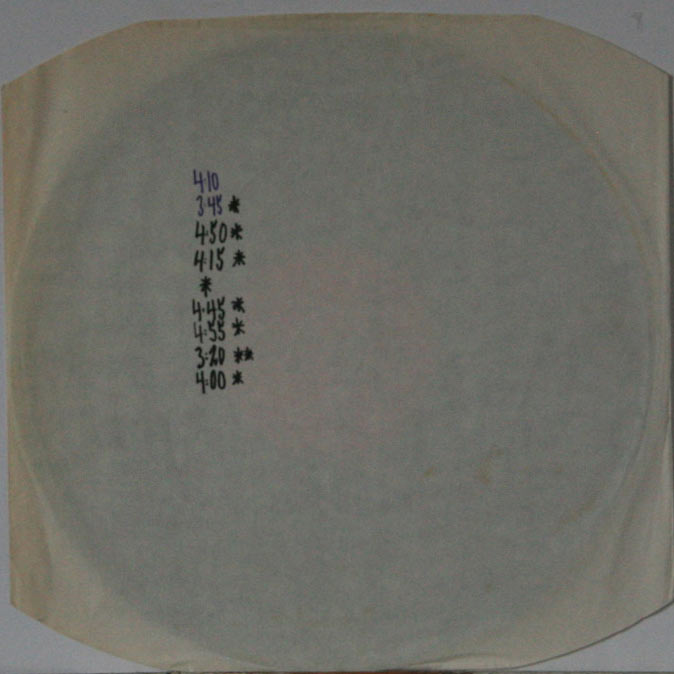 4:10
3:45 *
4:50 *
4:15 *
*
4:45 *
4:55 *
3:20 **
4:00 *